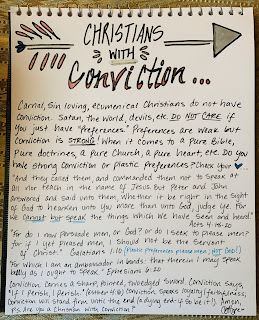 CHRISTIANS
WITH
Conviction...
Carnal, Sin loving, ecumenical Christians do not have
Conviction. Satan, the world, devils, etc. DO NOT CARE if
you Just have "Preferences." Preferences are weak but
Conviction is STRONG! When it comes to a Pure Bible,
Pure doctrines, a Pure Church, a pure heart, etc. Do you
have strong Conviction or plastic Preferences? Check your
"And they called them, and commanded them not to Speak at
all nor teach in the name of JESUS. But Peter and John
answered and said unto them, Whether it be right in the Sight
of God to hearken unto you more than unto God, judge ye. For
we cannot but speak the things which we have Seen and heard."
Acts 4:18-20
"For do I now persuade men, or God? or do I seek to please men?
for if I yet pleased men, I Should not be the Servant
of Christ." Galatians 1:10 (Plastic preferences please men, NOT God!)
"For which I am an ambassador in bonds: that therein I may Speak
boldly, as I ought to Speak." Ephesians 6:20
Conviction carries a Sharp, pointed, twoedged Sword. Conviction Says,
"If I Perish, I Perish." (Esther 4:16) Conviction Speaks loyalty & faithfulness,
Conviction will Stand firm until the end (a dying end if So be it!). Amen.
P.S. Are you a Christian With Conviction?"